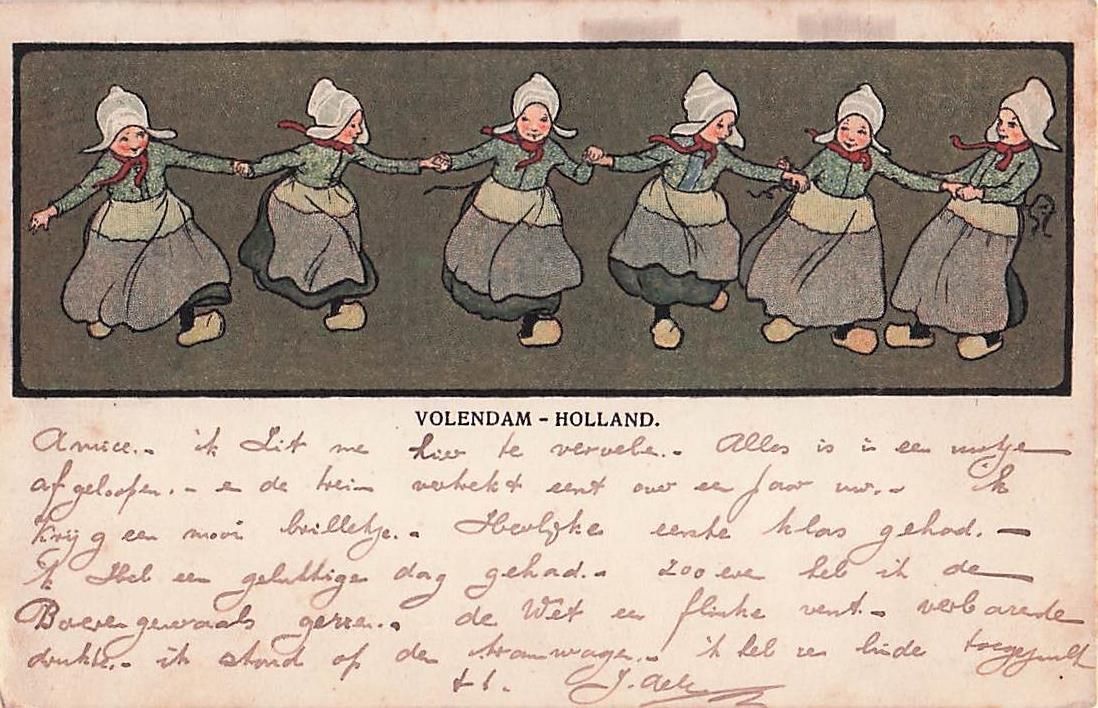 VOLENDAM - HOLLAND.
Amice.- ik zit me hier te vervele.- Alles is in een
afgeloopen.- en de trein vertrekt eerst over een paar uur.-  Ik
krijg een mooi brilletje.- Heerlijke eerste klas gehad.-
Ik Heb een gelukkige dag gehad.- Zoo even heb ik de
Boeren generaals gezien.- de Wet een flinke vent.-
drukte.- ik stond op de tramwagen.- ik heb ze luide
tt.